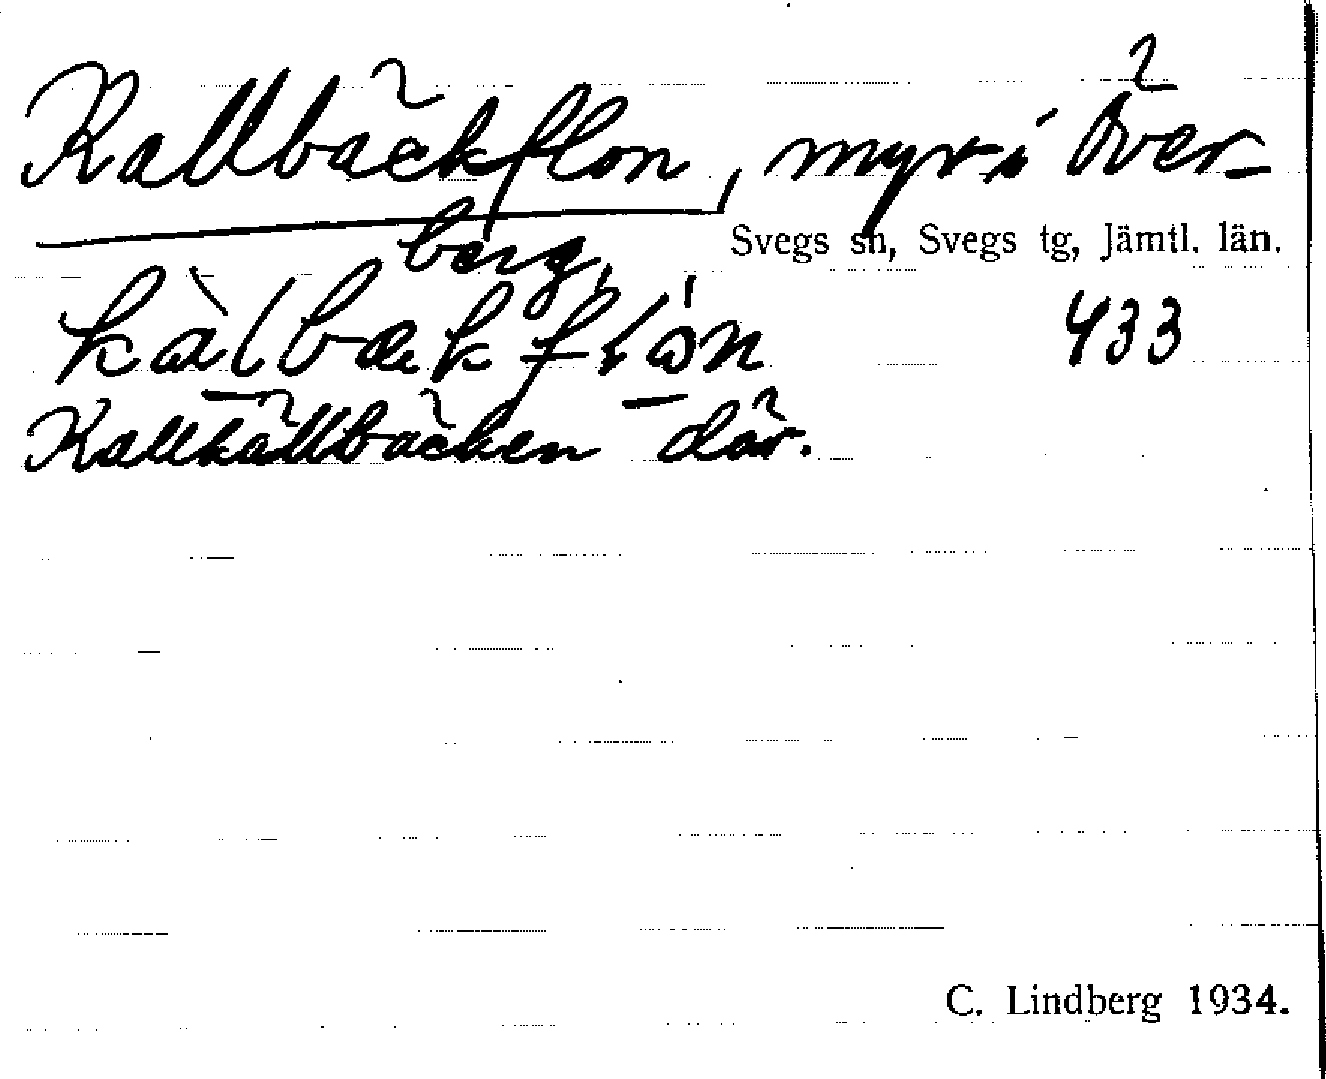 Kallbäckflon, myr i Över-
berg,
Svegs sn, Svegs tg, Jämtl. län.
kàlbækflón 433
Kallkällbäcken där.
C. Lindberg 1934.